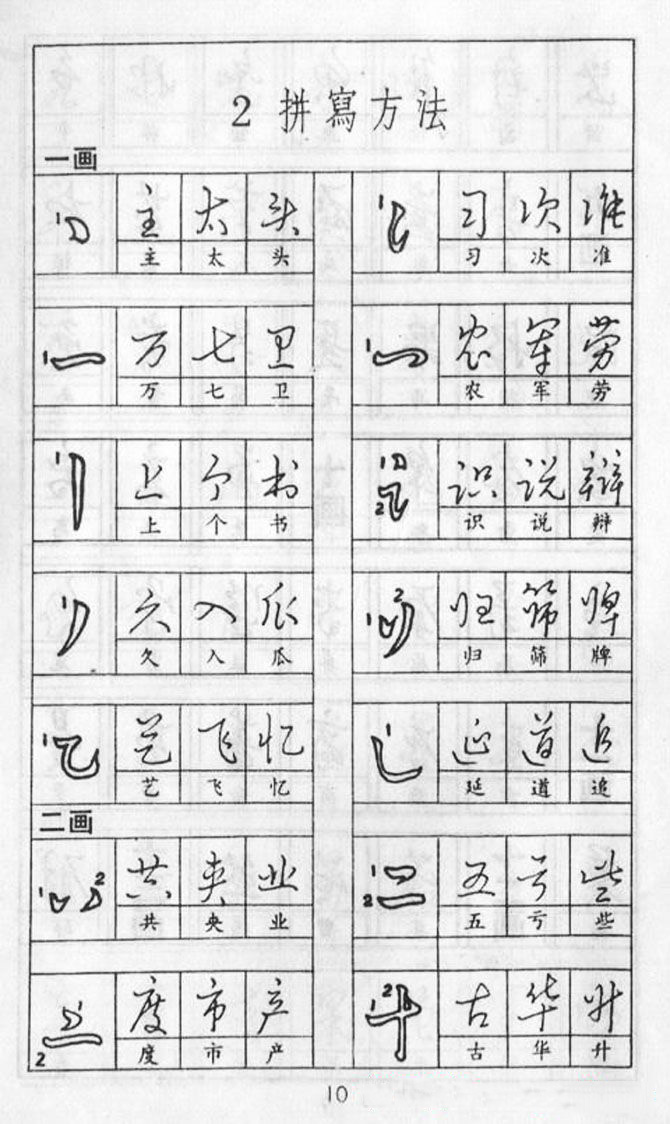 2 拼寫方法
一画
主 太 头 习 次 准
主 太 头 习 次 准
万 七 卫 农 军 劳
万 七 卫 农 军 劳
上 个 书 识 说 辩
上 个 书 识 说 辩
久 入 瓜 归 筛 牌
久 入 瓜 归 筛 牌
艺 飞 忆 延 道 追
艺 飞 忆 延 道 追
二画
共 央 业 五 亏 些
共 央 业 五 亏 些
度 市 产 古 华 升
度 市 产 古 华 升
10